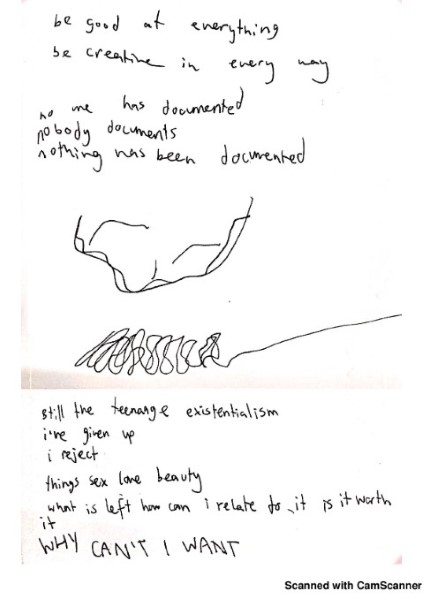 be good at everything
be creative in every way
no one has documented
nobody documents
nothing has been documented
still the teenage existentialism
i've given up
i reject
things sex love beauty
what is left how can i relate to it is it worth
it
WHY CAN'T I WANT
Scanned with CamScanner